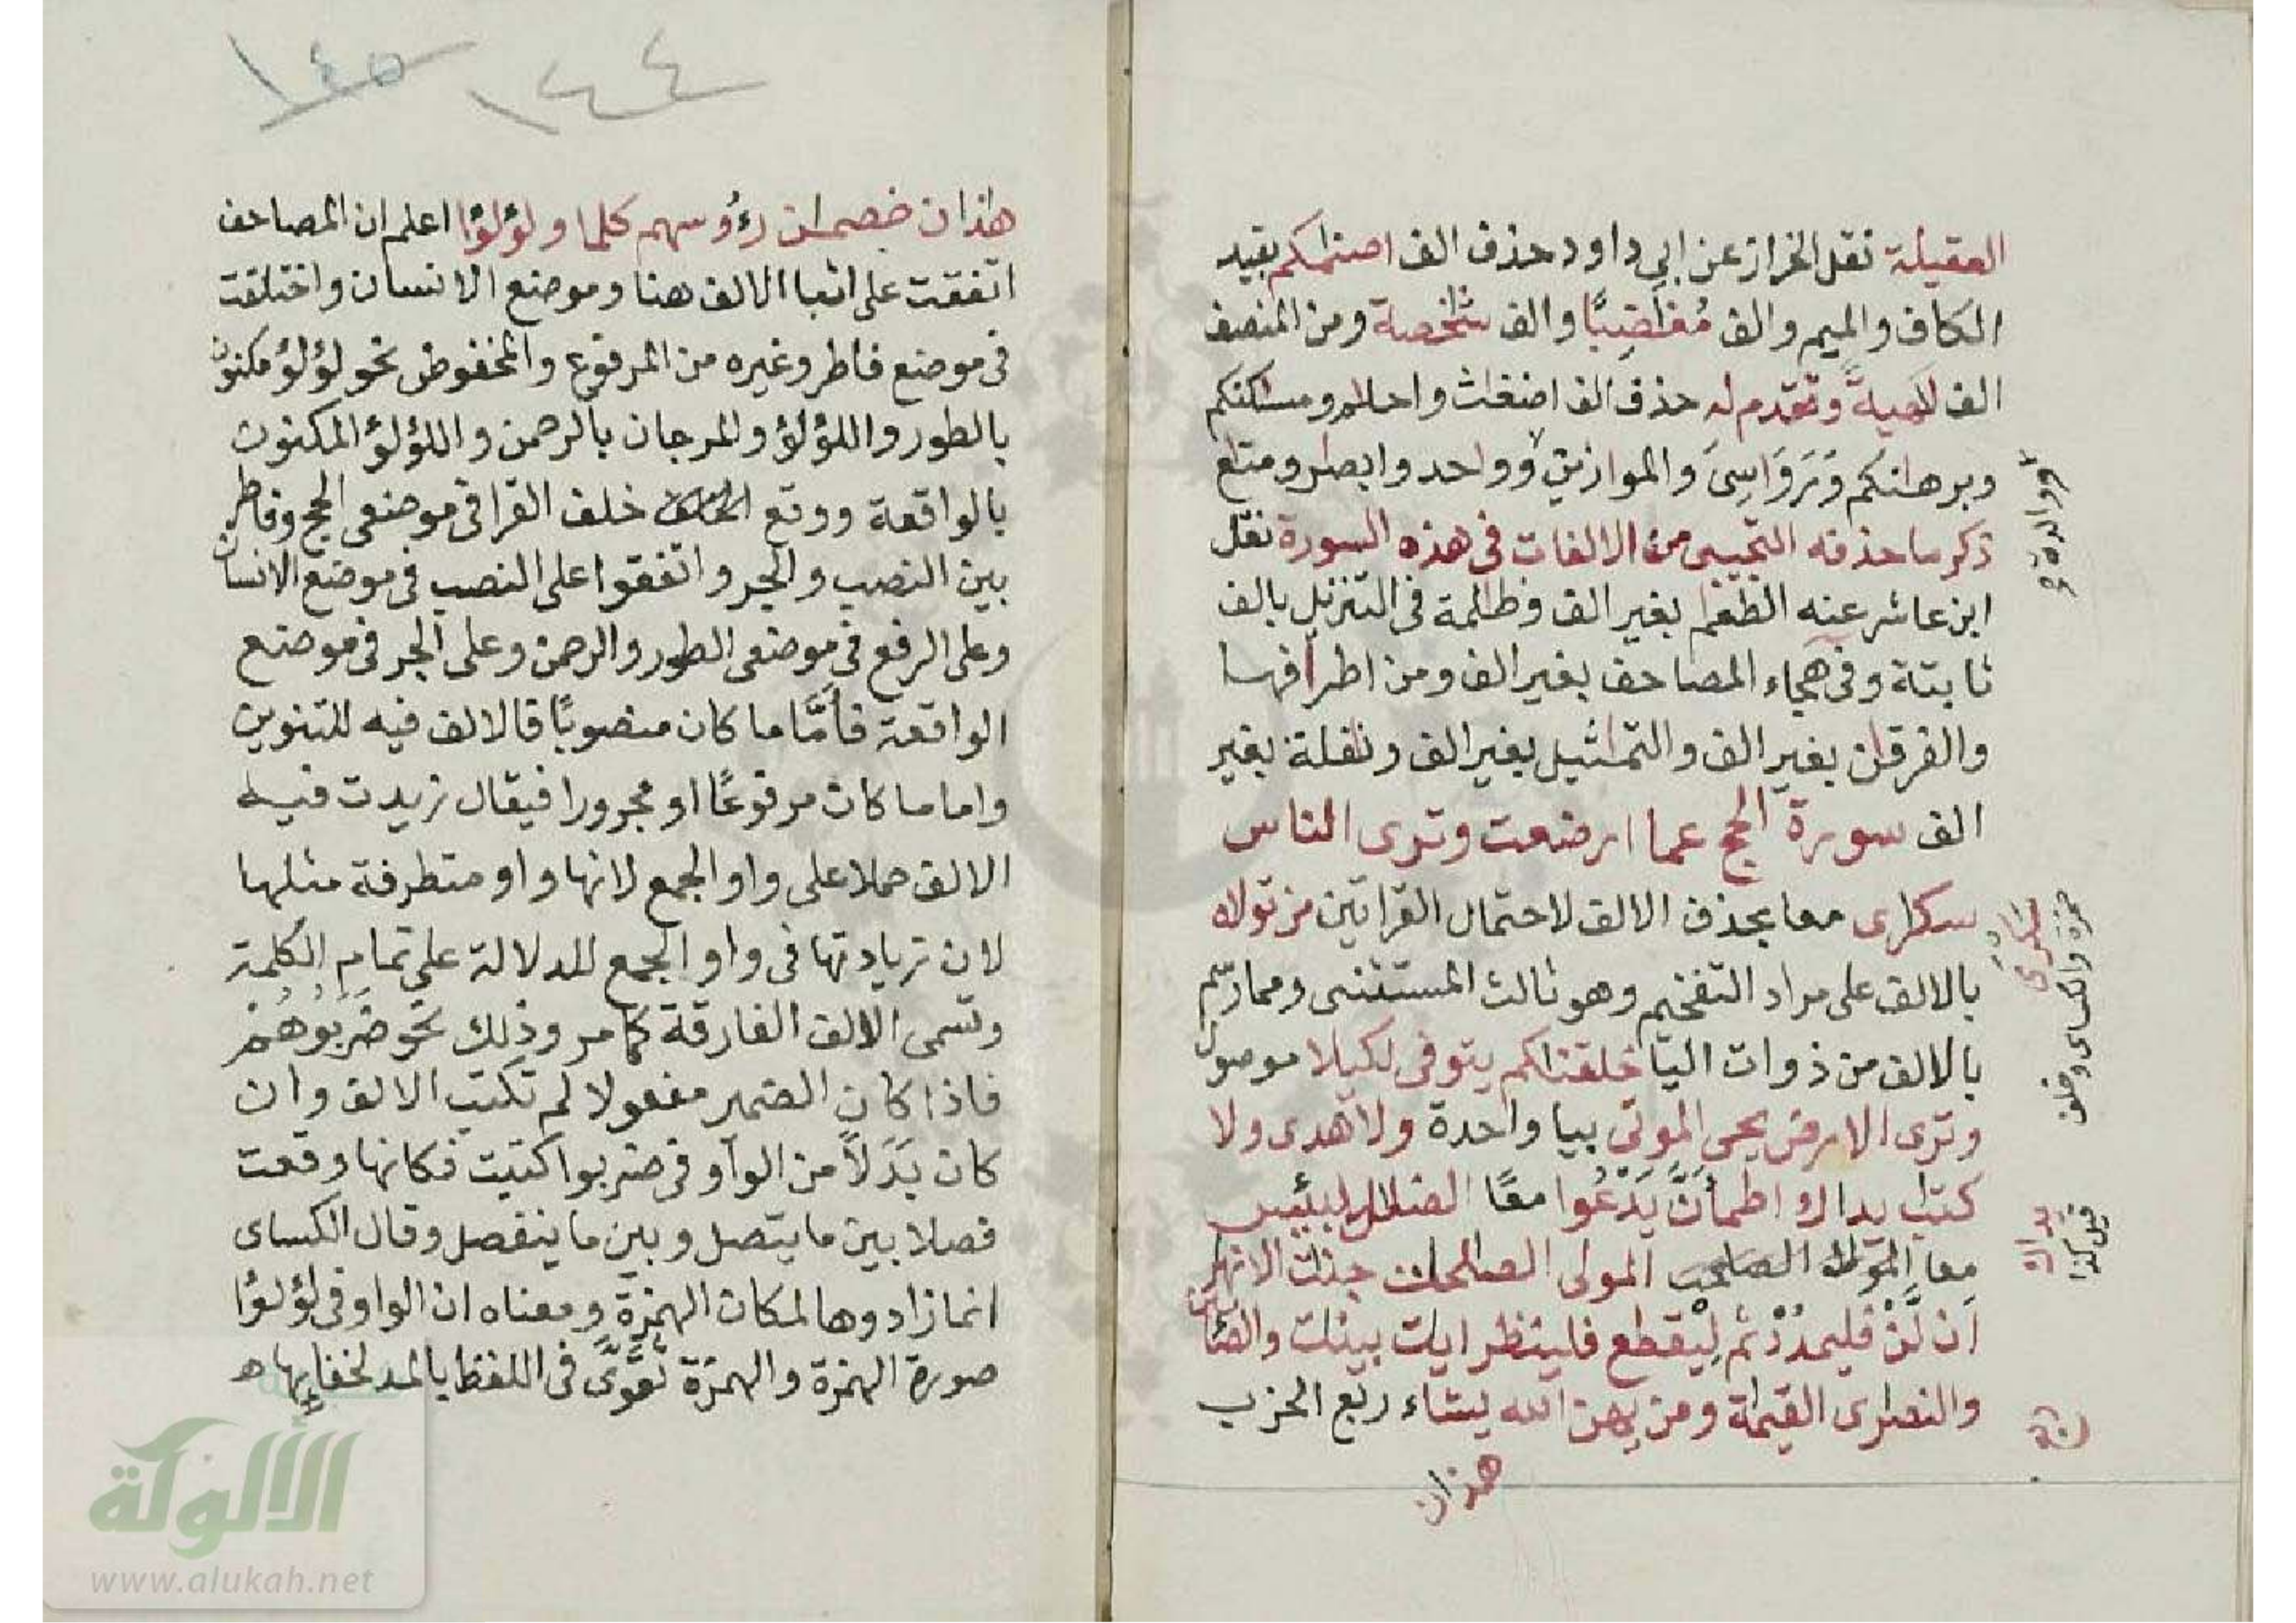 العقيلة نقل الخراز عن ابي داود حذف الف اصنامكم بقيد
الكاف والميم والف مُغاضِبًا والف شاخصة ومن المنصف
الف لاهيةً وتقدم له حذف الف اضغاث واحلام ومساكنكم
وبرهانكم وَرَوَاسِىَ والموازين وواحد وابصار ومتاع
ذكر ما حذفه التجيبى من الالفات فى هذه السورة نقل
ابن عاشر عنه الطعام بغير الف وظالمة فى التنزيل بالف
ثابتة وفى هجاء المصاحف بغير الف ومن اطرافها
والفرقان بغير الف والتماثيل بغير الف ونافلة بغير
الف سورة الحج عما ارضعت وترى الناس
سكارى معا بحذف الالف لاحتمال القراتين من تولاه
بالالف على مراد التفخيم وهو ثالث المستثنى ومما رسم
بالالف من ذوات اليا خلقناكم يتوفى لكيلا موصول
وترى الارض يحى الموتى بيا واحدة ولا هدى ولا
كتاب يداك اطمأنَّ يَدْعُوا معًا الضلال لبيس
معا المولى الصالحات جنات الانهار
أن لَّنْ فليمدُدْ ثم لِيْقطع فلينظر ايات بينات والصابين
والنصارى القيامة ومن يهن الله يشاء ربع الحزب
هذان
سكارى
حمزة والكساى وخلف
يداك
١٤٤
١٤٥
هاذان خصمان رءُوسهم كلما ولؤلؤا اعلم ان المصاحف
اتفقت على اثبا الالف هنا وموضع الانسان واختلفت
فى موضع فاطر وغيره من المرفوع والمخفوض نحو لؤلؤ مكنون
بالطور واللؤلؤ والمرجان بالرحمن واللؤلؤ المكنون
بالواقعة ووقع خلف القرا فى موضعى الحج وفاطر
بين النصب والجر واتفقوا على النصب فى موضع الانسان
وعلى الرفع فى موضعى الطور والرحمن وعلى الجر فى موضع
الواقعة فأمَّا ما كان منصوبًا فالالف فيه للتنوين
واما ما كان مرفوعًا او مجرورا فيقال زيدت فيه
الالف حملا على واو الجمع لانها واو متطرفة مثلها
لان زيادتها فى واو الجمع للدلالة على تمام الكلمة
وتسمى الالف الفارقة كما مر وذلك نحو ضَرَبُوهُمْ
فاذا كان الضمير مفعولا لم تكتب الالف وان
كان بَدَلاً من الواو فى ضربوا كتبت فكانها وقعت
فصلا بين ما يتصل وبين ما ينفصل وقال الكساى
انما زادوها لمكان الهمزة ومعناه ان الواو فى لؤلؤا
صورة الهمزة والهمزة تُقَوَّى فى اللفظ بالمد لخفايها
الألوكة
www.alukah.net